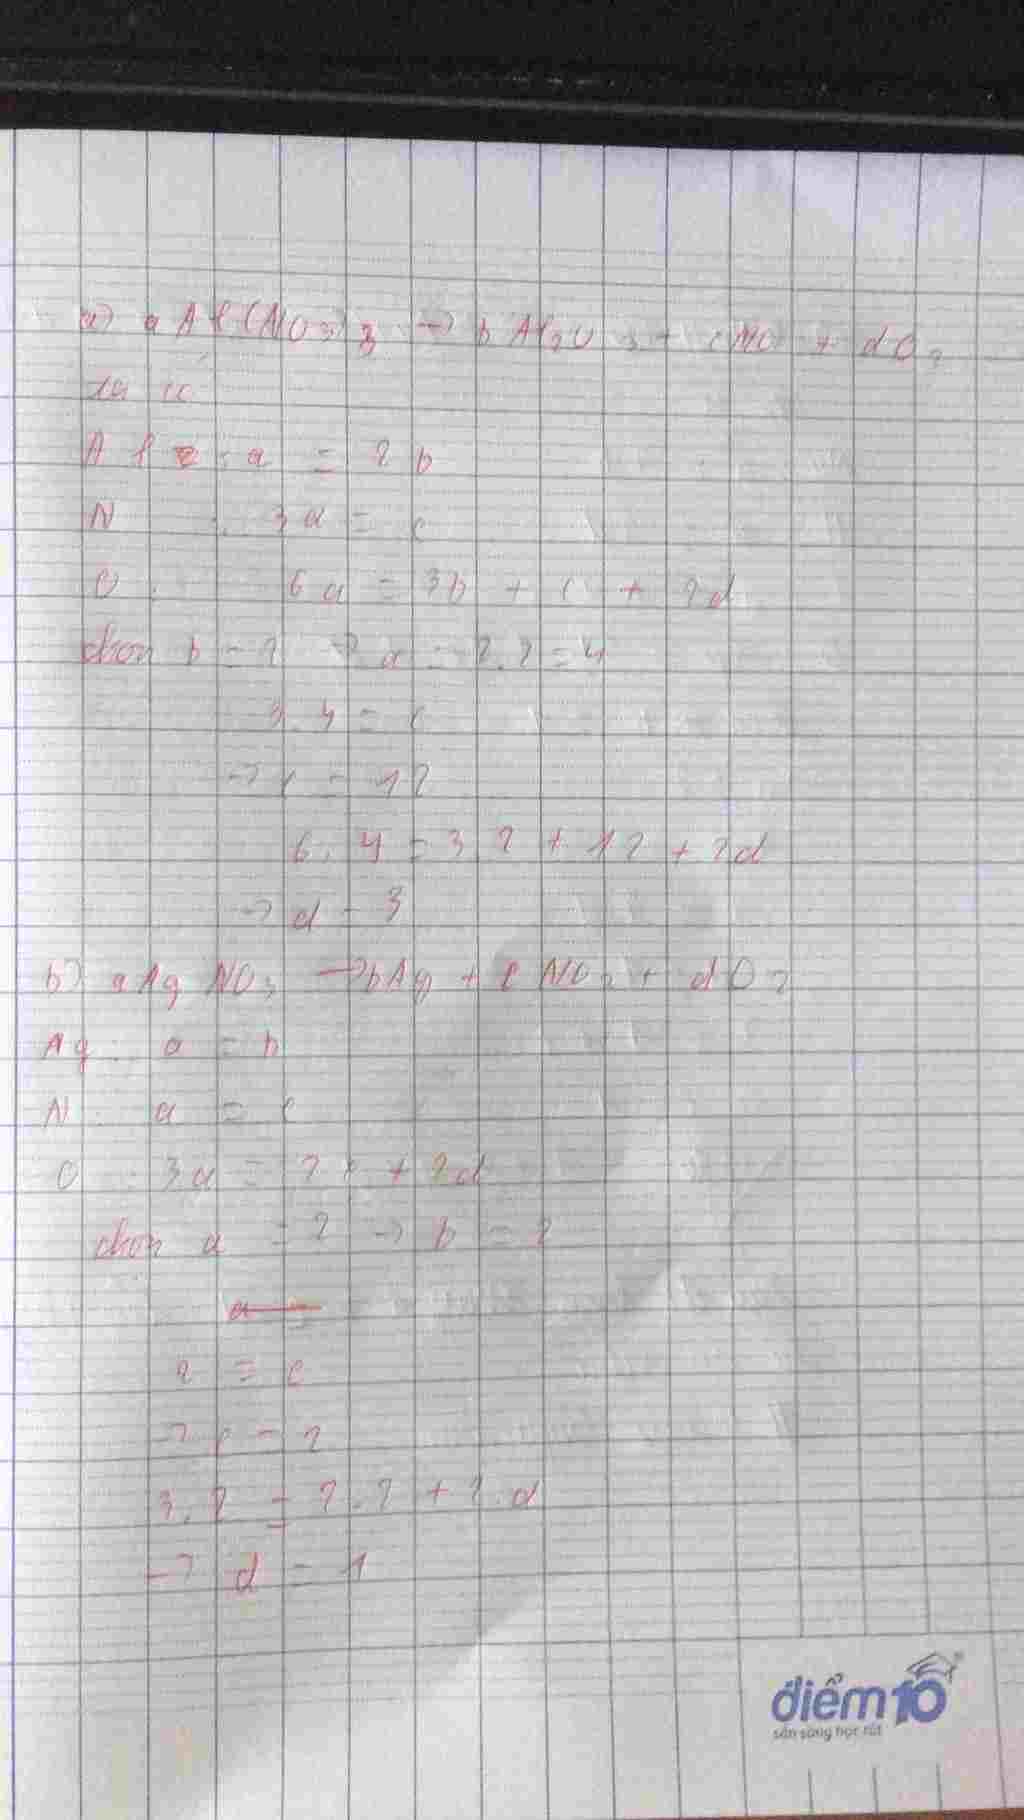 a) a Al(NO3)3 → b Al2O3 + cNO + dO2
ta có
Al : a = 2b
N : 3a = c
O : 6a = 3b + c + 2d
chọn b = 2 → a = 2.2 = 4
3.4 = c
→ c = 12
6.4 = 3.2 + 12 + 2d
→ d = 3
b) aAgNO3 → bAg + cNO2 + dO2
Ag : a = b
N : a = c
O : 3a = 2c + 2d
chọn a = 2 → b = 2
a
2 = c
→ c = 2
3.2 = 2.2 + 2.d
→ d = 1
điểm10
sẵn sàng học tốt